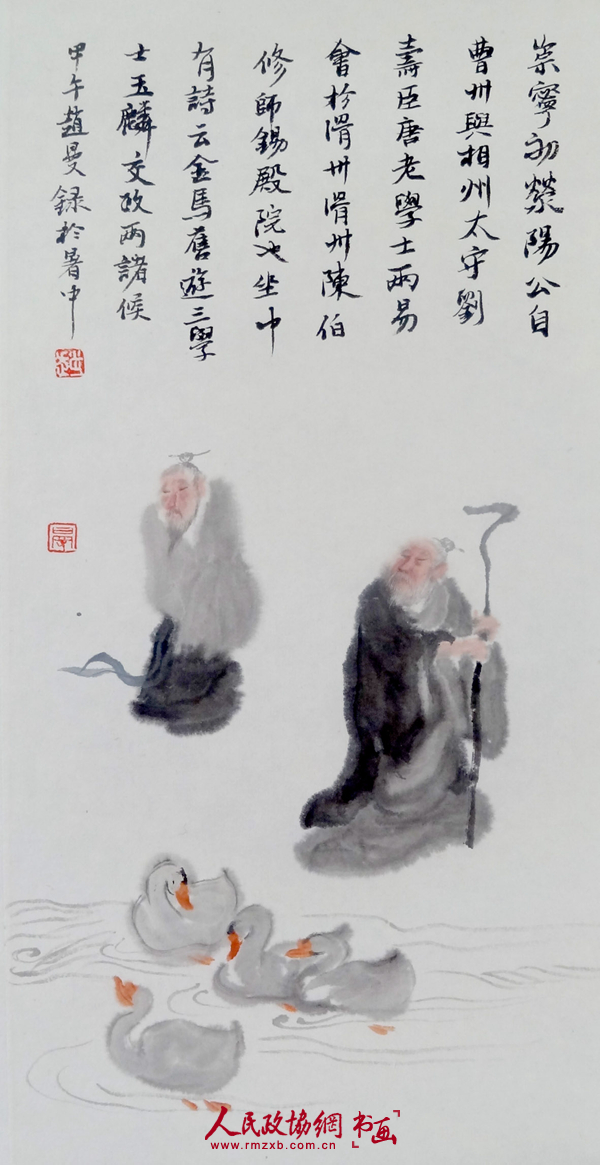 崇寧初滎陽公自
曹州與相州太守劉
壽臣唐老學士兩易
會於滑州滑州陳伯
修師錫殿院也坐中
有詩云金馬舊遊三學
士玉麟交政兩諸候
甲午趙曼録於暑中
人民政協網 书画
www.rmzxb.com.cn